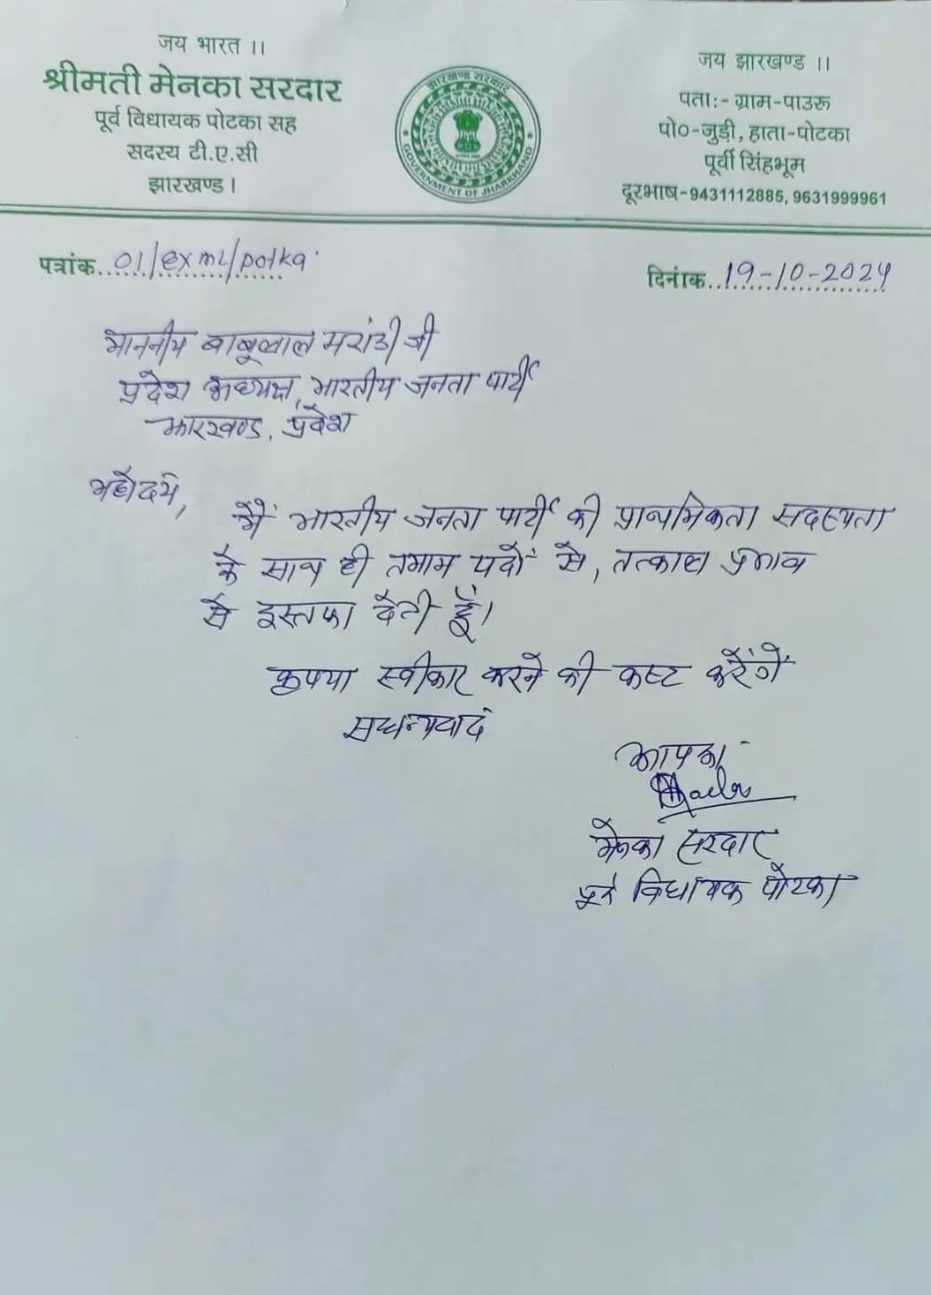 जय भारत ।।
श्रीमती मेनका सरदार
पूर्व विधायक पोटका सह
सदस्य टी.ए.सी
झारखण्ड।
झारखण्ड सरकार
GOVERNMENT OF JHARKHAND
जय झारखण्ड ।।
पता:- ग्राम-पाउरू
पो०-जुड़ी, हाता-पोटका
पूर्वी सिंहभूम
दूरभाष-9431112885, 9631999961
पत्रांक..01/exmL/potka
दिनांक..19-10-2024
माननीय बाबूलाल मरांडी जी
प्रदेश अध्यक्ष, भारतीय जनता पार्टी
झारखण्ड, प्रदेश
महोदय,
मैं भारतीय जनता पार्टी की प्राथमिकता सदस्यता
के साथ ही तमाम पदों से, तत्काल प्रभाव
से इस्तफा देती हूँ।
कृपया स्वीकार करने की कष्ट करेंगें
सधन्यवाद
आपका
मेनका सरदार
पूर्व विधायक पोटका